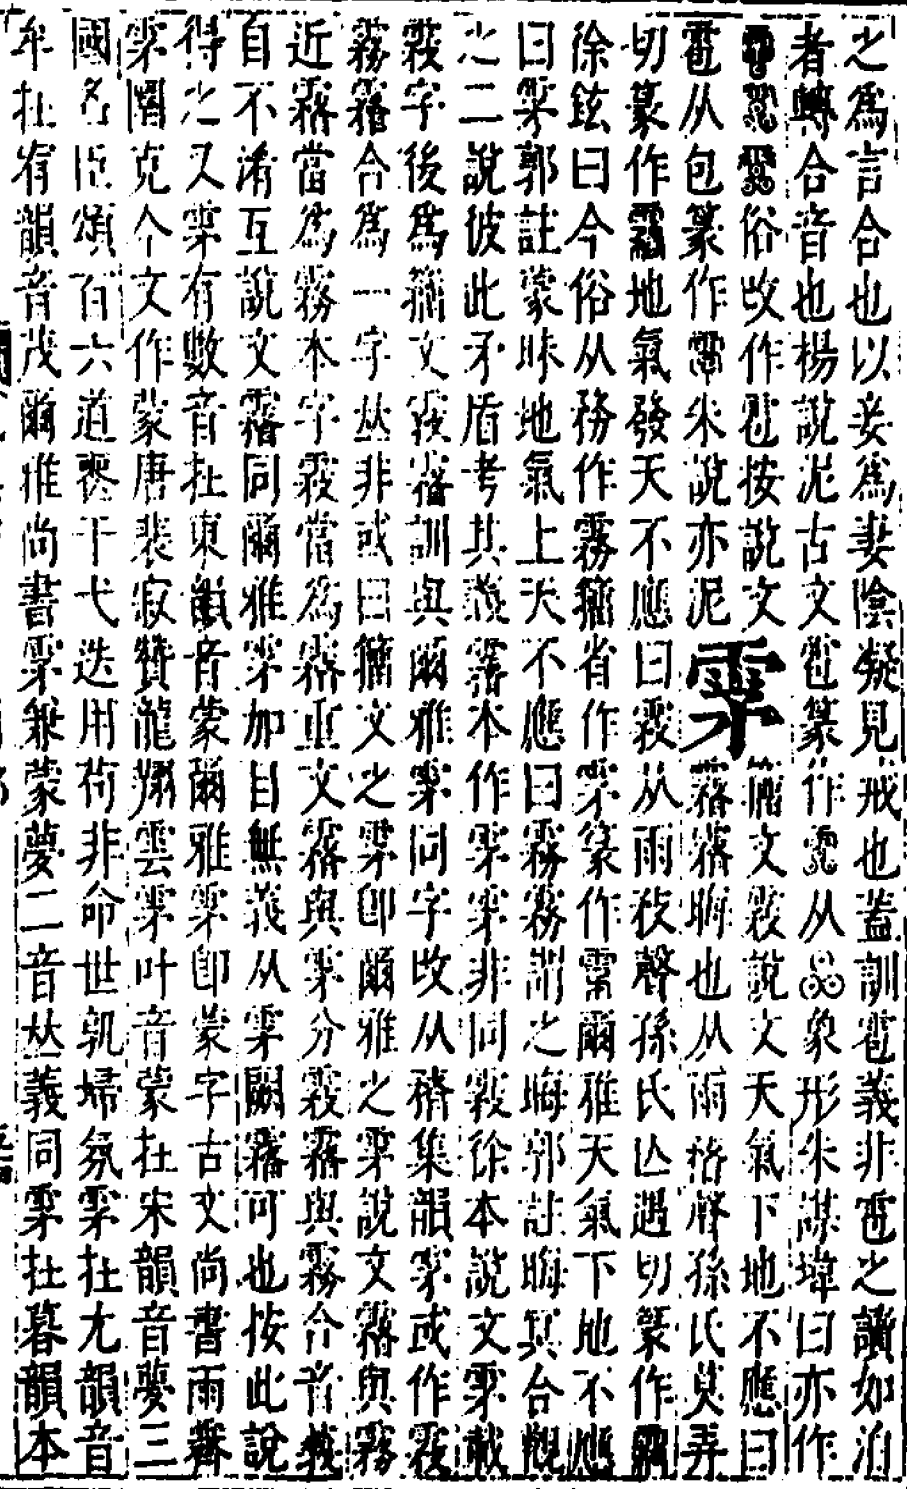 之爲言合也以妾爲妻陰凝見戒也蓋訓雹義非雹之讀如泊
者轉合音也楊說泥古文雹篆作从象形朱謀㙔曰亦作
俗改作雹按說文
雹从包篆作朱說亦泥
霿籀文霚說文天氣下地不應曰
霿霿晦也从雨瞀聲孫氏莫弄
切篆作地氣發天不應曰霚从雨敄聲孫氏亾遇切篆作
徐鉉曰今俗从務作霧籀省作雺篆作爾雅天氣下地不應
曰雺郭註蒙昧地氣上天不應曰霧霧謂之晦郭註晦冥合觀
之二說彼此矛盾考其義霿本作雺雺非同霚徐本說文雺載
霚字後爲籀文霚霿訓與爾雅雺同字改从瞀集韻雺或作霚
霧霿合爲一字丛非或曰籀文之雺卽爾雅之雺說文霿與霧
近霿當爲霧本字霚當爲霿重文霿與雺分霚霿與霧合音義
自不淆互說文霿同爾雅雺加目無義从雺闕霿可也按此說
得之又雺有數音在東韻音蒙爾雅雺卽蒙字古文尚書雨霿
雺闇克今文作蒙唐裴寂贊龍翔雲雺叶音蒙在宋韻音夢三
國名臣頌百六道喪干戈迭用苟非命世孰婦氛雺在尤韻音
牟在宥韻音茂爾雅尚書雺兼蒙夢二音丛義同雺在暮韻本